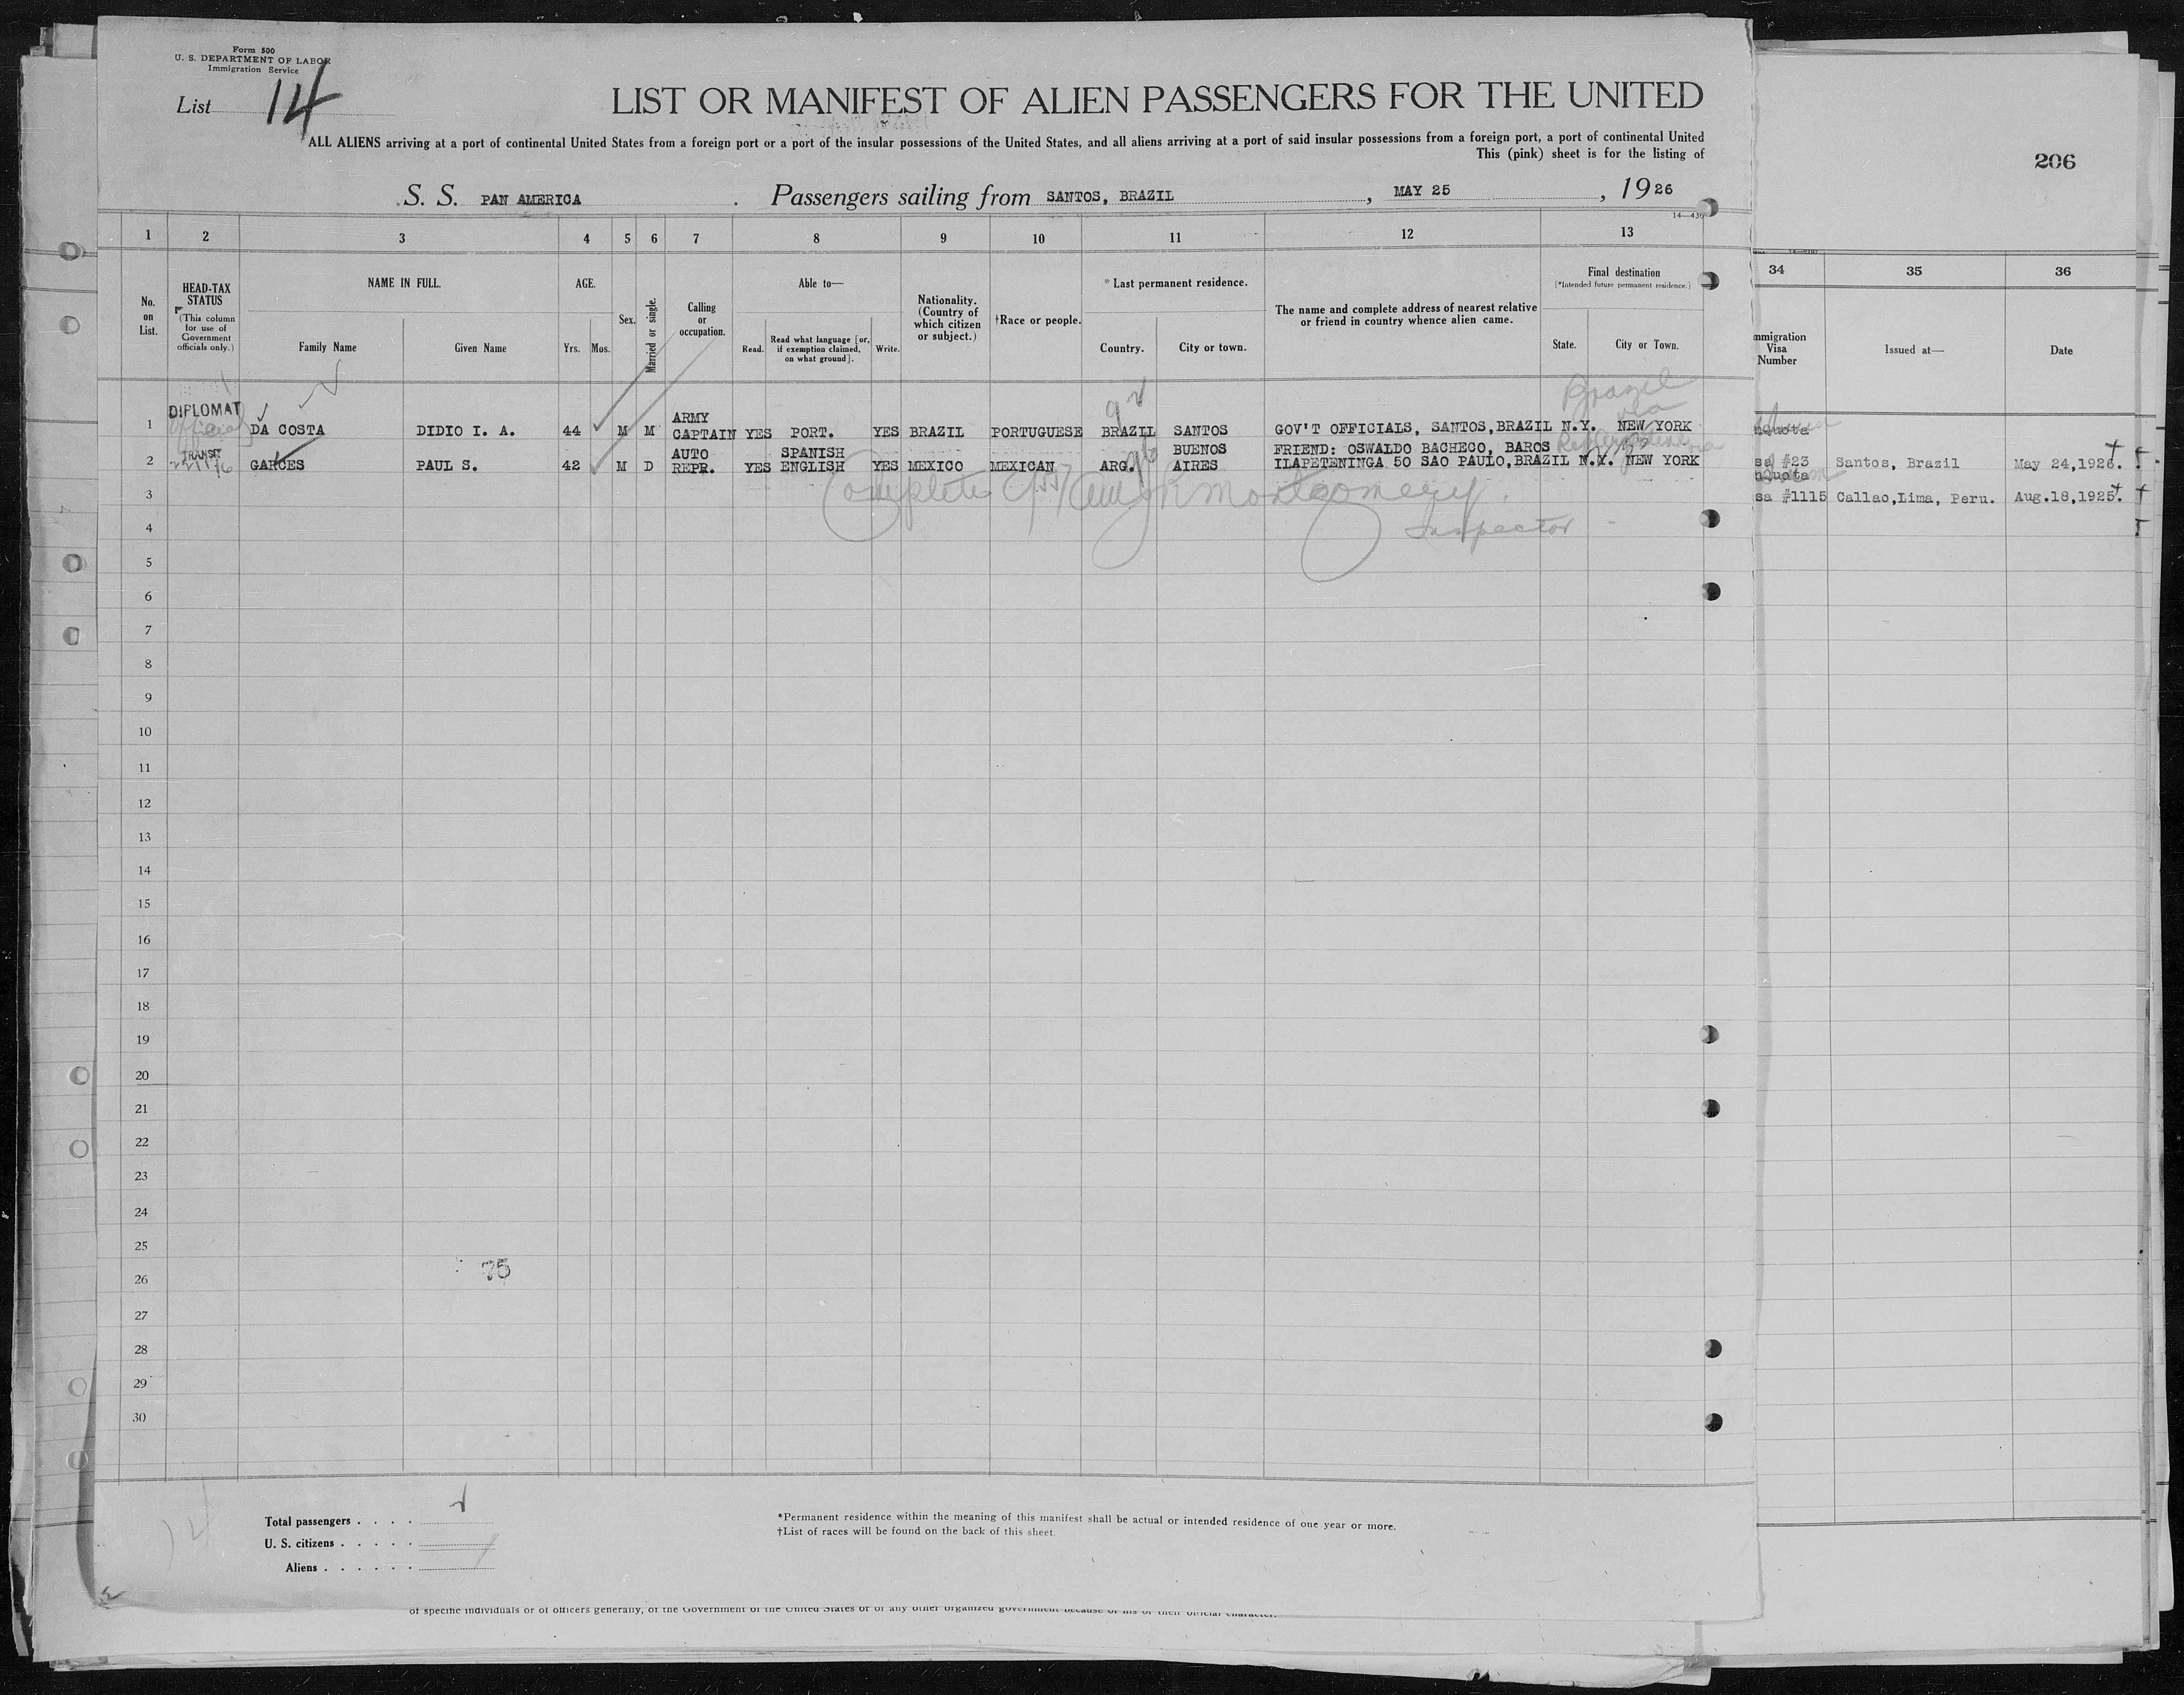 Form 500
U. S. DEPARTMENT OF LABOR
Immigration Service
List 14
LIST OR MANIFEST OF ALIEN PASSENGERS FOR THE UNITED
ALL ALIENS arriving at a port of continental United States from a foreign port or a port of the insular possessions of the United States, and all aliens arriving at a port of said insular possessions from a foreign port, a port of continental United
This (pink) sheet is for the listing of
206
S. S. PAN AMERICA . Passengers sailing from SANTOS, BRAZIL , MAY 25 , 1926
1 2 3 4 5 6 7 8 9 10 11 12 13 34 35 36
No. on List.
HEAD-TAX STATUS
(This column for use of Government officials only.)
NAME IN FULL.
Family Name
Given Name
AGE.
Yrs. Mos.
Sex.
Married or single.
Calling or occupation.
Able to—
Read.
Read what language [or, if exemption claimed, on what ground].
Write.
Nationality. (Country of which citizen or subject.)
†Race or people.
* Last permanent residence.
Country.
City or town.
The name and complete address of nearest relative or friend in country whence alien came.
Final destination
[*Intended future permanent residence.]
State.
City or Town.
mmigration Visa Number
Issued at—
Date
Brazil
via
1 DIPLOMAT Official DA COSTA DIDIO I. A. 44 M M ARMY CAPTAIN YES PORT. YES BRAZIL PORTUGUESE BRAZIL SANTOS GOV'T OFFICIALS, SANTOS, BRAZIL N.Y. NEW YORK
2 TRANSIT GARCES PAUL S. 42 M D AUTO REPR. YES SPANISH ENGLISH YES MEXICO MEXICAN ARG. BUENOS AIRES FRIEND: OSWALDO BACHECO, BAROS ILAPETENINGA 50 SAO PAULO, BRAZIL N.Y. NEW YORK
nquota
sa #23 Santos, Brazil May 24,1926.
nquota
sa #1115 Callao,Lima, Peru. Aug.18,1925.
Complete Montgomery
Inspector
3
4
5
6
7
8
9
10
11
12
13
14
15
16
17
18
19
20
21
22
23
24
25
75
26
27
28
29
30
Total passengers . . . .
U. S. citizens . . . . .
Aliens . . . . . .
*Permanent residence within the meaning of this manifest shall be actual or intended residence of one year or more.
†List of races will be found on the back of this sheet.
14
of specific individuals or of officers generally, of the Government of the United States or of any other organized government because of his or their official character.